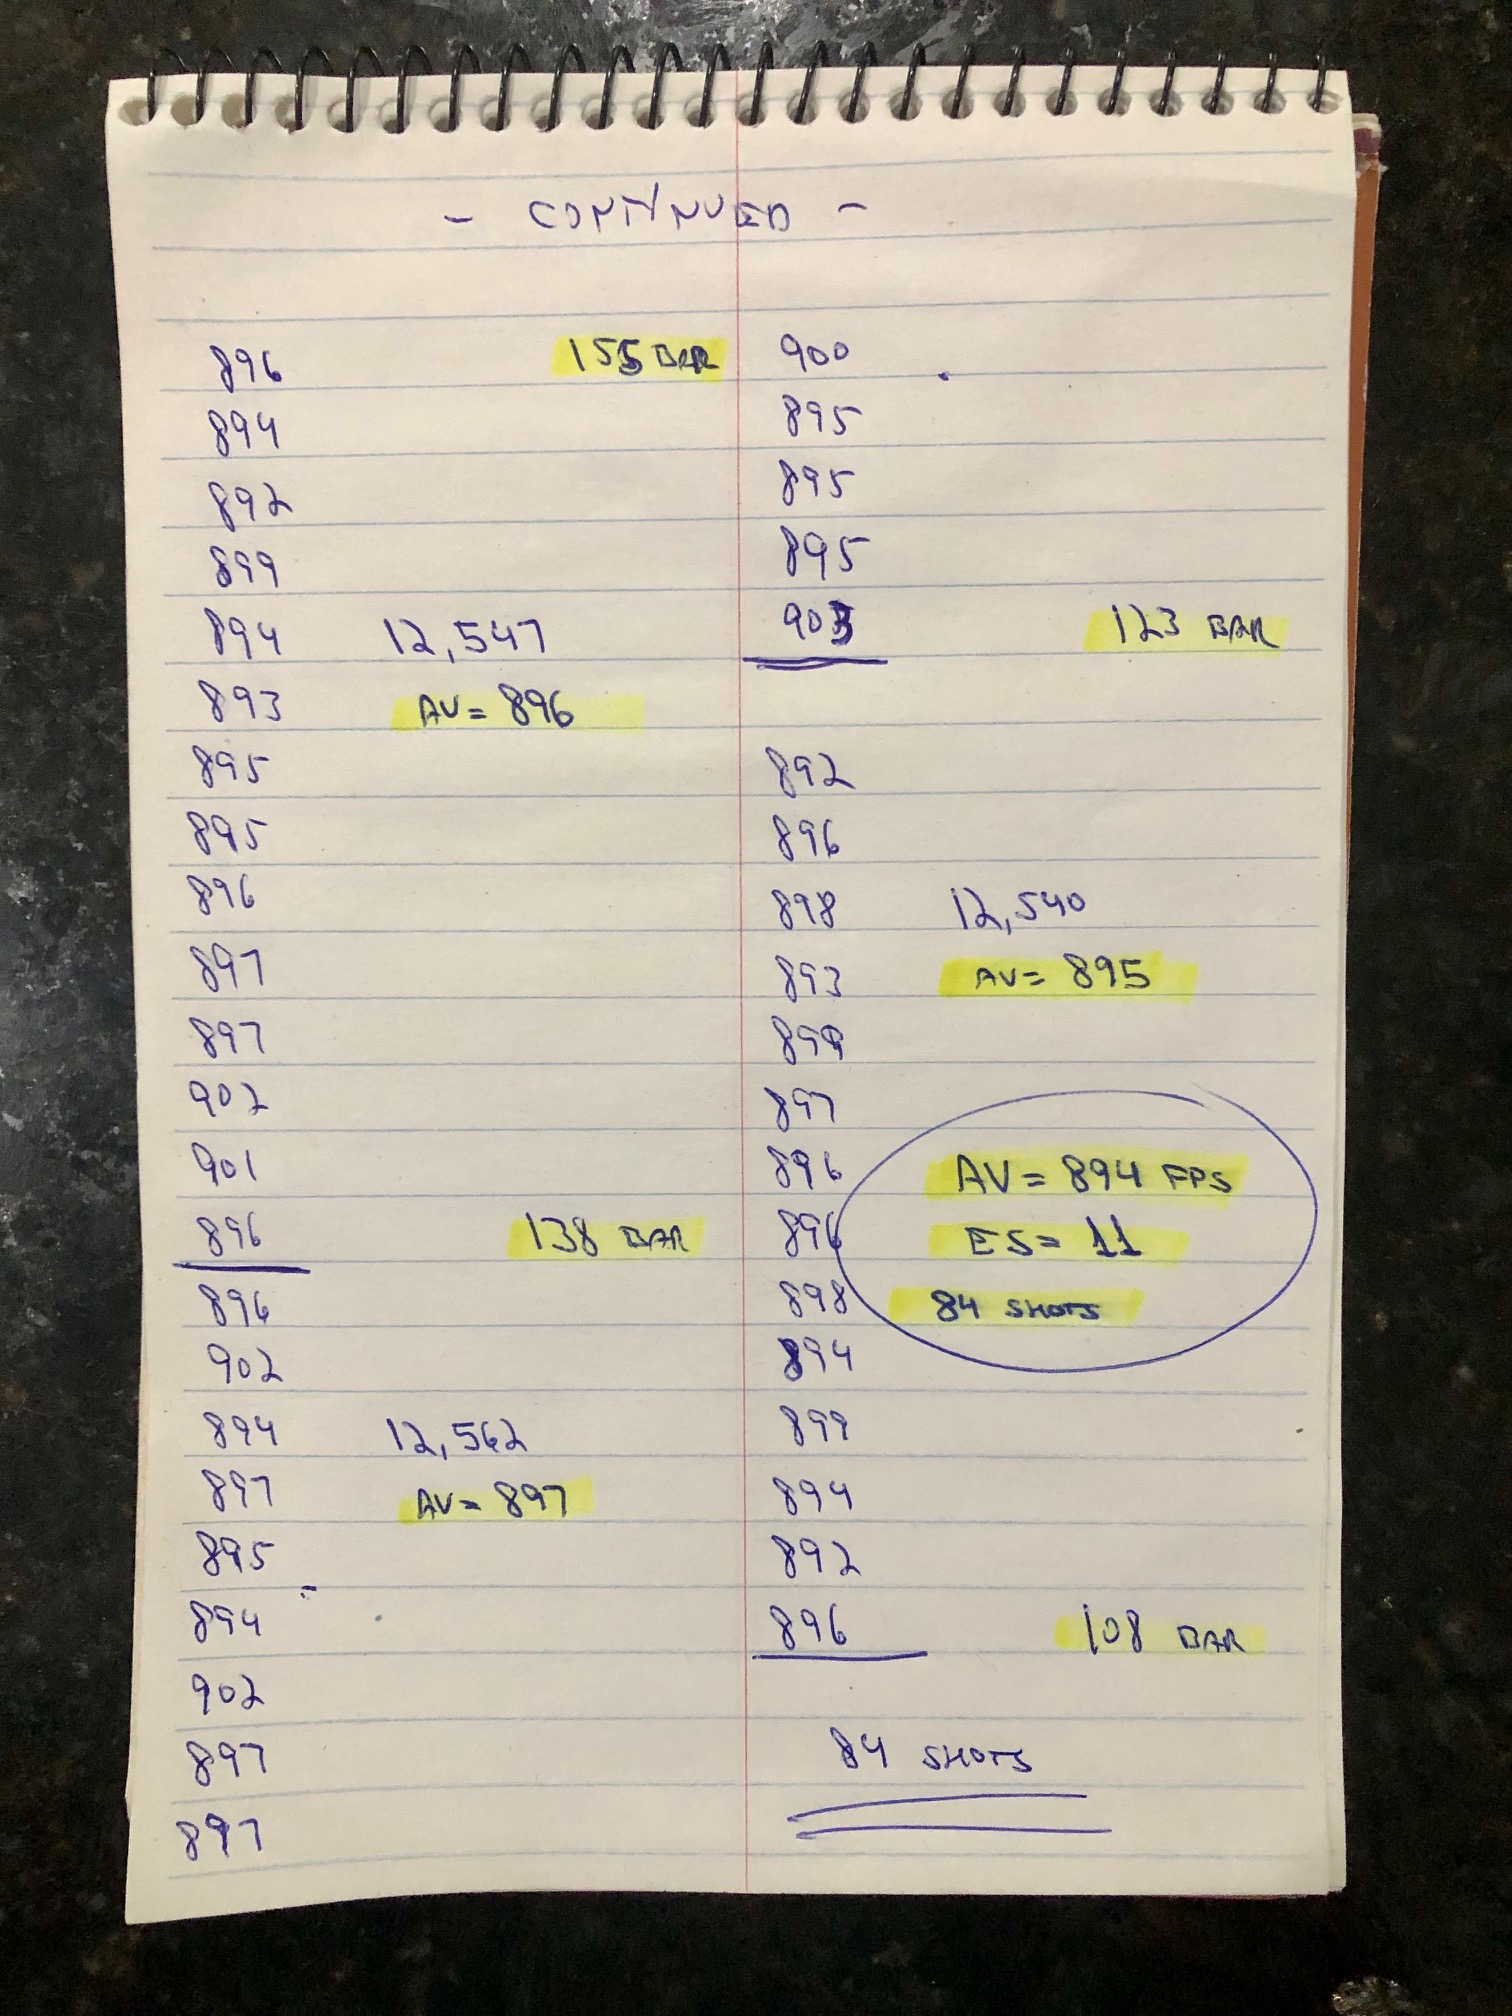 - CONTINUED -
896 155 BAR
894
892
899
894 12,547
893 AV= 896
895
895
896
897
897
902
901
896 138 BAR
896
902
894 12,562
897 AV= 897
895
894
902
897
897
900
895
895
895
903 123 BAR
892
896
898 12,540
893 AV= 895
899
897
896 AV= 894 FPS
896 ES= 11
898 84 SHOTS
894
899
894
892
896 108 BAR
84 SHOTS